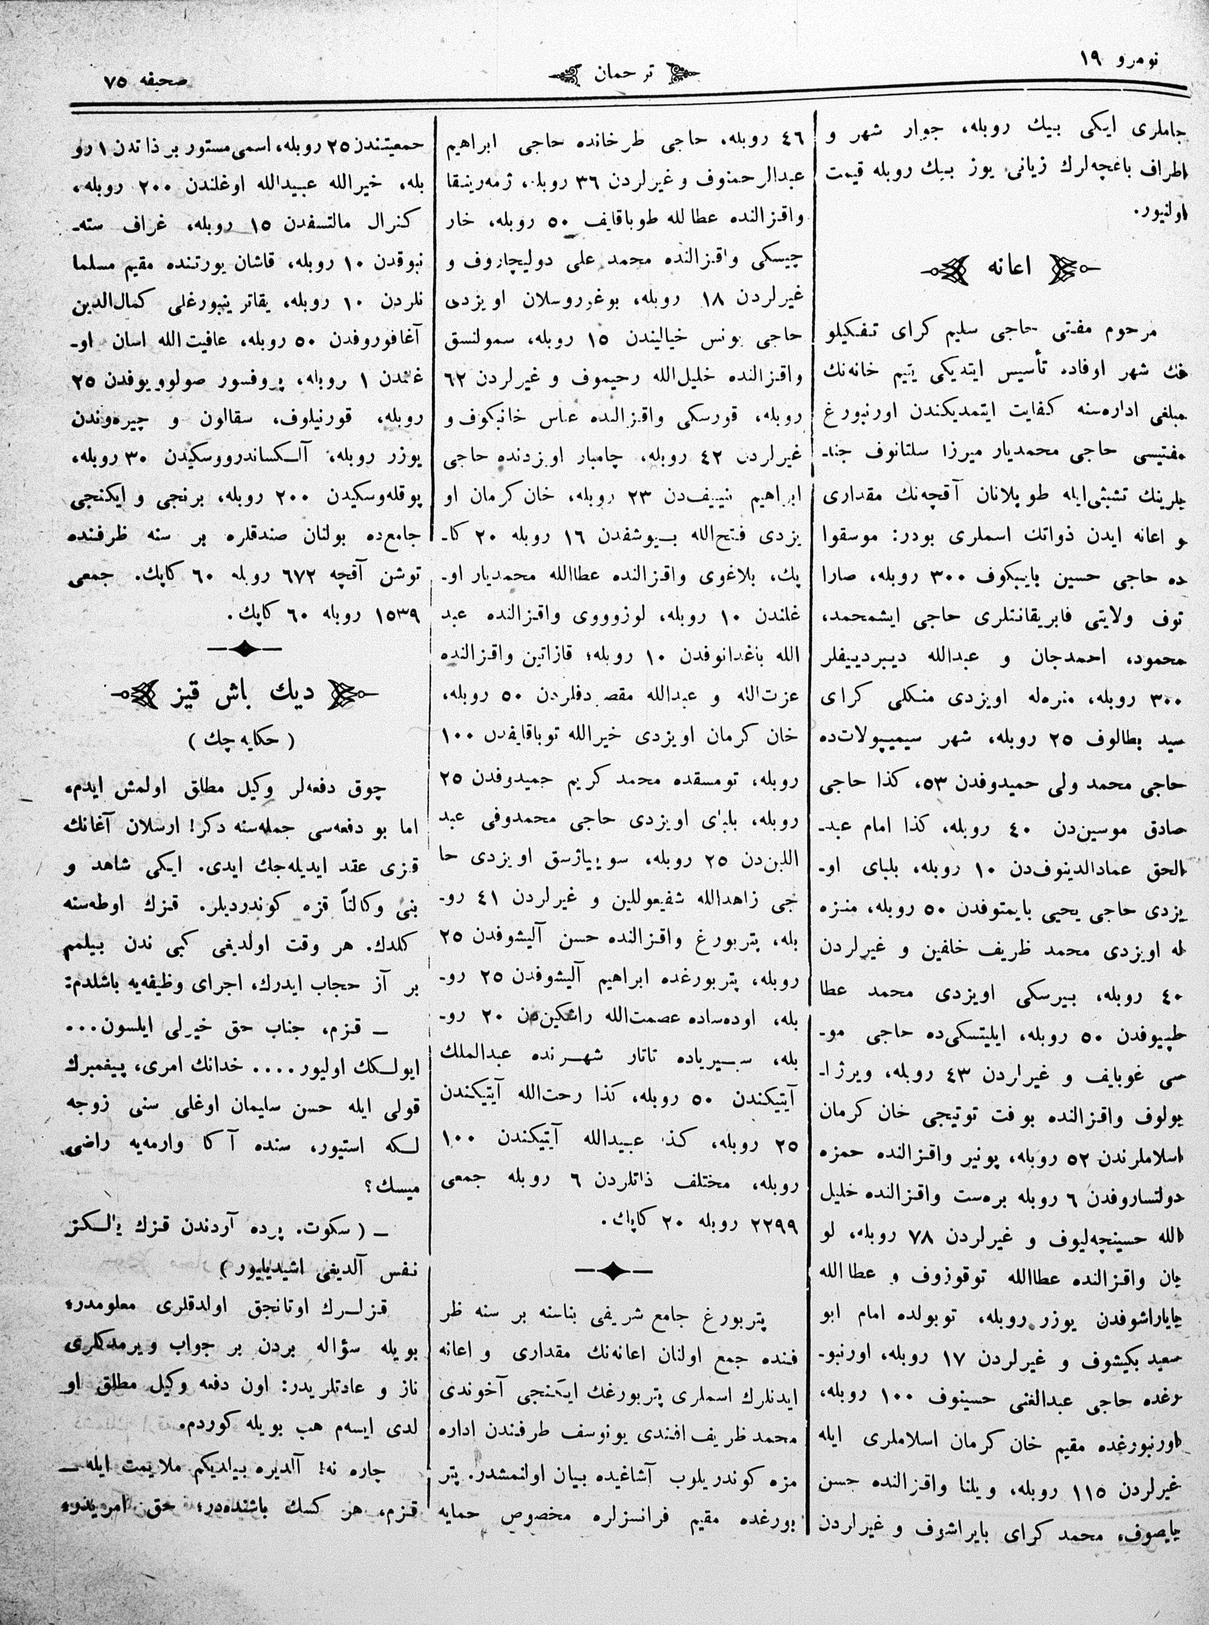 نومرو ١٩
ترجمان
صحيفه ٧٥
جاملری ایکی بیك روبله، جوار شهر و
اطراف باغچه‌لرك زیانی یوز بیك روبله قیمت
اولنیور.
اعانه
مرحوم مفتی حاجی سلیم کرای تفکیلو
فك شهر اوفاده تأسیس ایتدیکی یتیم خانه‌نك
مبلغی اداره‌سنه کفایت ایتمدیکندن اورنبورغ
مفتیسی حاجی محمدیار میرزا سلتانوف جنا‍
بلرینك تشبثی‌ایله طوپلانان آقچه‌نك مقداری
و اعانه ایدن ذواتك اسملری بودر: موسقوا
ده حاجی حسین بایبکوف ٣٠٠ روبله، صارا
توف ولایتی فابریقانتلری حاجی ایشمحمد،
محمود، احمدجان و عبدالله دیبردییفلر
٣٠٠ روبله، منزه‌له اویزدی منکلی کرای
سید بطالوف ٢٥ روبله، شهر سیمیپولات‌ده
حاجی محمد ولی حمیدوفدن ٥٣، کذا حاجی
صادق موسین‌دن ٤٠ روبله، کذا امام عبد‍
الحق عمادالدینوف‌دن ١٠ روبله، بلبای او‍
یزدی حاجی یحیی بایمتوفدن ٥٠ روبله، منزه
له اویزدی محمد ظریف خلفین و غیرلردن
٤٠ روبله، بیرسکی اویزدی محمد عطا
طپیوفدن ٥٠ روبله، ایلیتسکی‌ده حاجی مو‍
سی غوبایف و غیرلردن ٤٣ روبله، ویرژا‍
بولوف واقزالنده بوفت توتیجی خان کرمان
اسلاملرندن ٥٢ روبله، پونیر واقزالنده حمزه
دولتساروفدن ٦ روبله بره‌ست واقزالنده خلیل
الله حسینچه‌لیوف و غیرلردن ٧٨ روبله، لو
بان واقزالنده عطاالله توقوزوف و عطاالله
چاپاراشوفدن یوزر روبله، توبولده امام ابو
سعید بکیشوف و غیرلردن ١٧ روبله، اورنبو‍
رغده حاجی عبدالغنی حسینوف ١٠٠ روبله،
اورنبورغده مقیم خان کرمان اسلاملری ایله
غیرلردن ١١٥ روبله، ویلنا واقزالنده حسن
چایصوف، محمد کرای بایراشوف و غیرلردن
٤٦ روبله، حاجی طرخانده حاجی ابراهیم
عبدالرحمنوف و غیرلردن ٣٦ روبله، ژمه‌رینقا
واقزالنده عطالله طوباقایف ٥٠ روبله، خار
چیسکی واقزالنده محمد علی دولیچاروف و
غیرلردن ١٨ روبله، بوغوروسلان اویزدی
حاجی یونس خیالیندن ١٥ روبله، سمولنسق
واقزالنده خلیل‌الله رحیموف و غیرلردن ٦٢
روبله، قورسکی واقزالنده عباس خانبکوف و
غیرلردن ٤٢ روبله، چامبار اویزدنده حاجی
ابراهیم نییف‌دن ٢٣ روبله، خان کرمان او
یزدی فتح‌الله بیوشفدن ١٦ روبله ٢٠ کا‍
پك، بلاغوی واقزالنده عطاالله محمدیار او‍
غلندن ١٠ روبله، لوزوووی واقزالنده عبد
الله باغدانوفدن ١٠ روبله؛ قازاتین واقزالنده
عزت‌الله و عبدالله مقصدفلردن ٥٠ روبله،
خان کرمان اویزدی خیرالله توباقایفدن ١٠٠
روبله، تومسقده محمد کریم حمیدوفدن ٢٥
روبله، بلبای اویزدی حاجی محمدوفی عبد
اللین‌دن ٢٥ روبله، سوییاژسق اویزدی حا
جی زاهدالله شفیعوللین و غیرلردن ٤١ رو‍
بله، پتربورغ واقزالنده حسن آلیشوفدن ٢٥
روبله، پتربورغده ابراهیم آلیشوفدن ٢٥ رو‍
بله، اوده‌ساده عصمت‌الله رانکین‌دن ٢٠ رو‍
بله، سبیریاده تاتار شهرنده عبدالملك
آیتیکندن ٥٠ روبله، کذا رحت‌الله آیتیکندن
٢٥ روبله، کذا عبیدالله آیتیکندن ١٠٠
روبله، مختلف ذاتلردن ٦ روبله جمعی
٢٢٩٩ روبله ٢٠ کاپك.
پتربورغ جامع شریفی بناسنه بر سنه ظر
فنده جمع اولنان اعانه‌نك مقداری و اعانه
ایدنلرك اسملری پتربورغك ایکنجی آخوندی
محمد ظریف افندی یونوسف طرفندن اداره
مزه کوندریلوب آشاغیده بیان اولنمشدر. پتر
بورغده مقیم فرانسزلره مخصوص حمایه
جمعیتندن ٢٥ روبله، اسمی مستور بر ذاتدن ١ رو
بله، خیرالله عبیدالله اوغلندن ٢٠٠ روبله،
کنرال مالتسفدن ١٥ روبله، غراف سته‍
نبوقدن ١٠ روبله، قاشان یورتنده مقیم مسلما
نلردن ١٠ روبله، یقاترینبورغلی کمال‌الدین
آغافوروفدن ٥٠ روبله، عافیت‌الله اسان او‍
غلندن ١ روبله، پروفسور صولوویوفدن ٢٥
روبله، قورنیلوف، سقالون و چیره‌وندن
یوزر روبله، آلکساندرووسکیدن ٣٠ روبله،
پوقله‌وسکیدن ٢٠٠ روبله، برنجی و ایکنجی
جامع‌ده بولنان صندقلره بر سنه ظرفنده
توشن آقچه ٦٧٢ روبله ٦٠ کاپك. جمعی
١٥٣٩ روبله ٦٠ کاپك.
دیك باش قیز
( حکایه‌چك )
چوق دفعه‌لر وکیل مطلق اولمش ایدم،
اما بو دفعه‌سی جمله‌سنه دکر! ارسلان آغانك
قزی عقد ایدیله‌جك ایدی. ایکی شاهد و
بنی وکالتاً قزه کوندردیلر. قزك اوطه‌سنه
کلدك. هر وقت اولدیغی کبی ندن بیلمم
بر آز حجاب ایدرك، اجرای وظیفه‌یه باشلدم:
— قزم، جناب حق خیرلی ایلسون...
ایولکك اولیور.... خدانك امری، پیغمبرك
قولی ایله حسن سلیمان اوغلی سنی زوجه
لکه استیور، سنده آکا وارمه‌یه راضی
میسك؟
— ( سکوت. پرده آردندن قزك یالکز
نفس آلدیغی اشیدیلیور )
قزلرك اوتانجق اولدقلری معلومدر،
بویله سؤاله بردن بر جواب ویرمدکلری
ناز و عادتلریدر: اون دفعه وکیل مطلق او
لدی ایسه‌م هب بویله کوردم.
چاره نه! آلدیره بیلدیکم ملایمت ایله —
قزم، هر کسك باشنده‌در؛ حق امریدر،